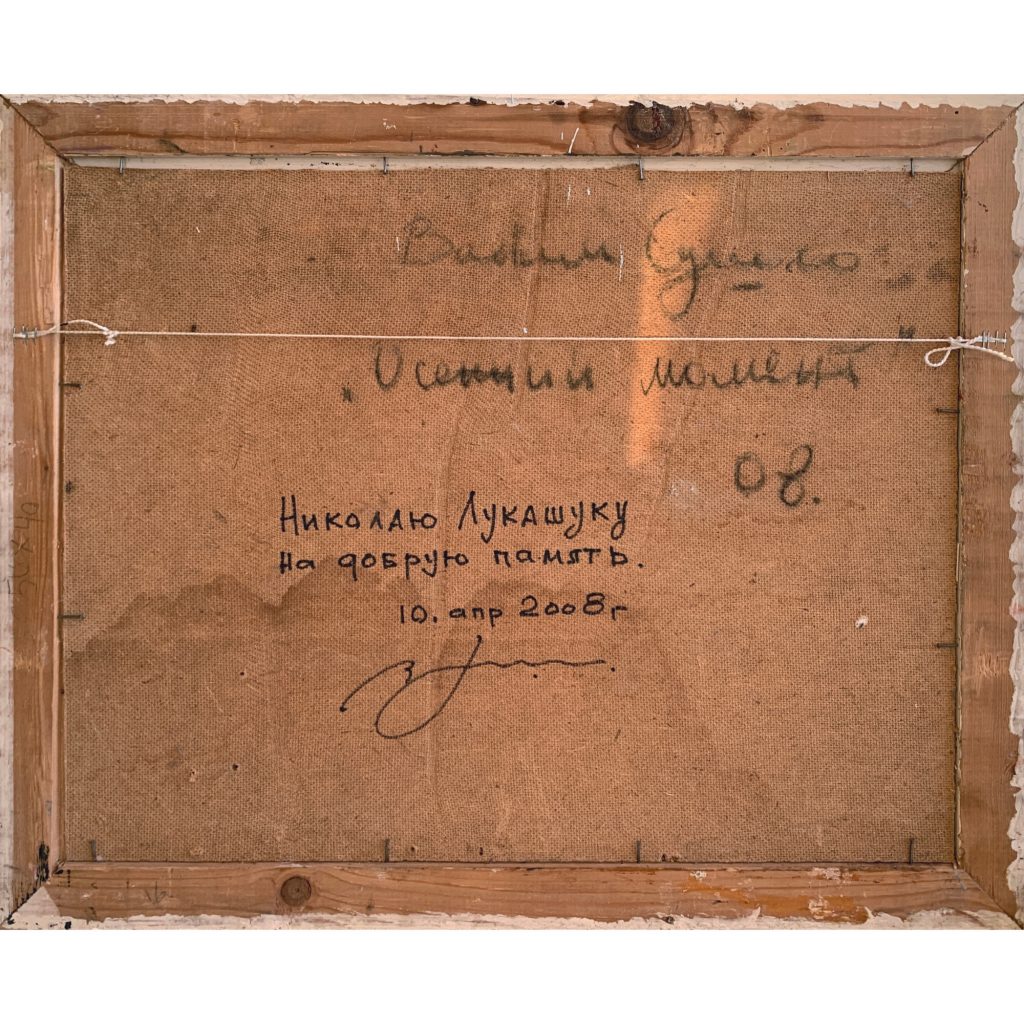 Вадим Сушко
„Осенний момент"
08.
Николаю Лукашуку
на добрую память.
10. апр 2008г